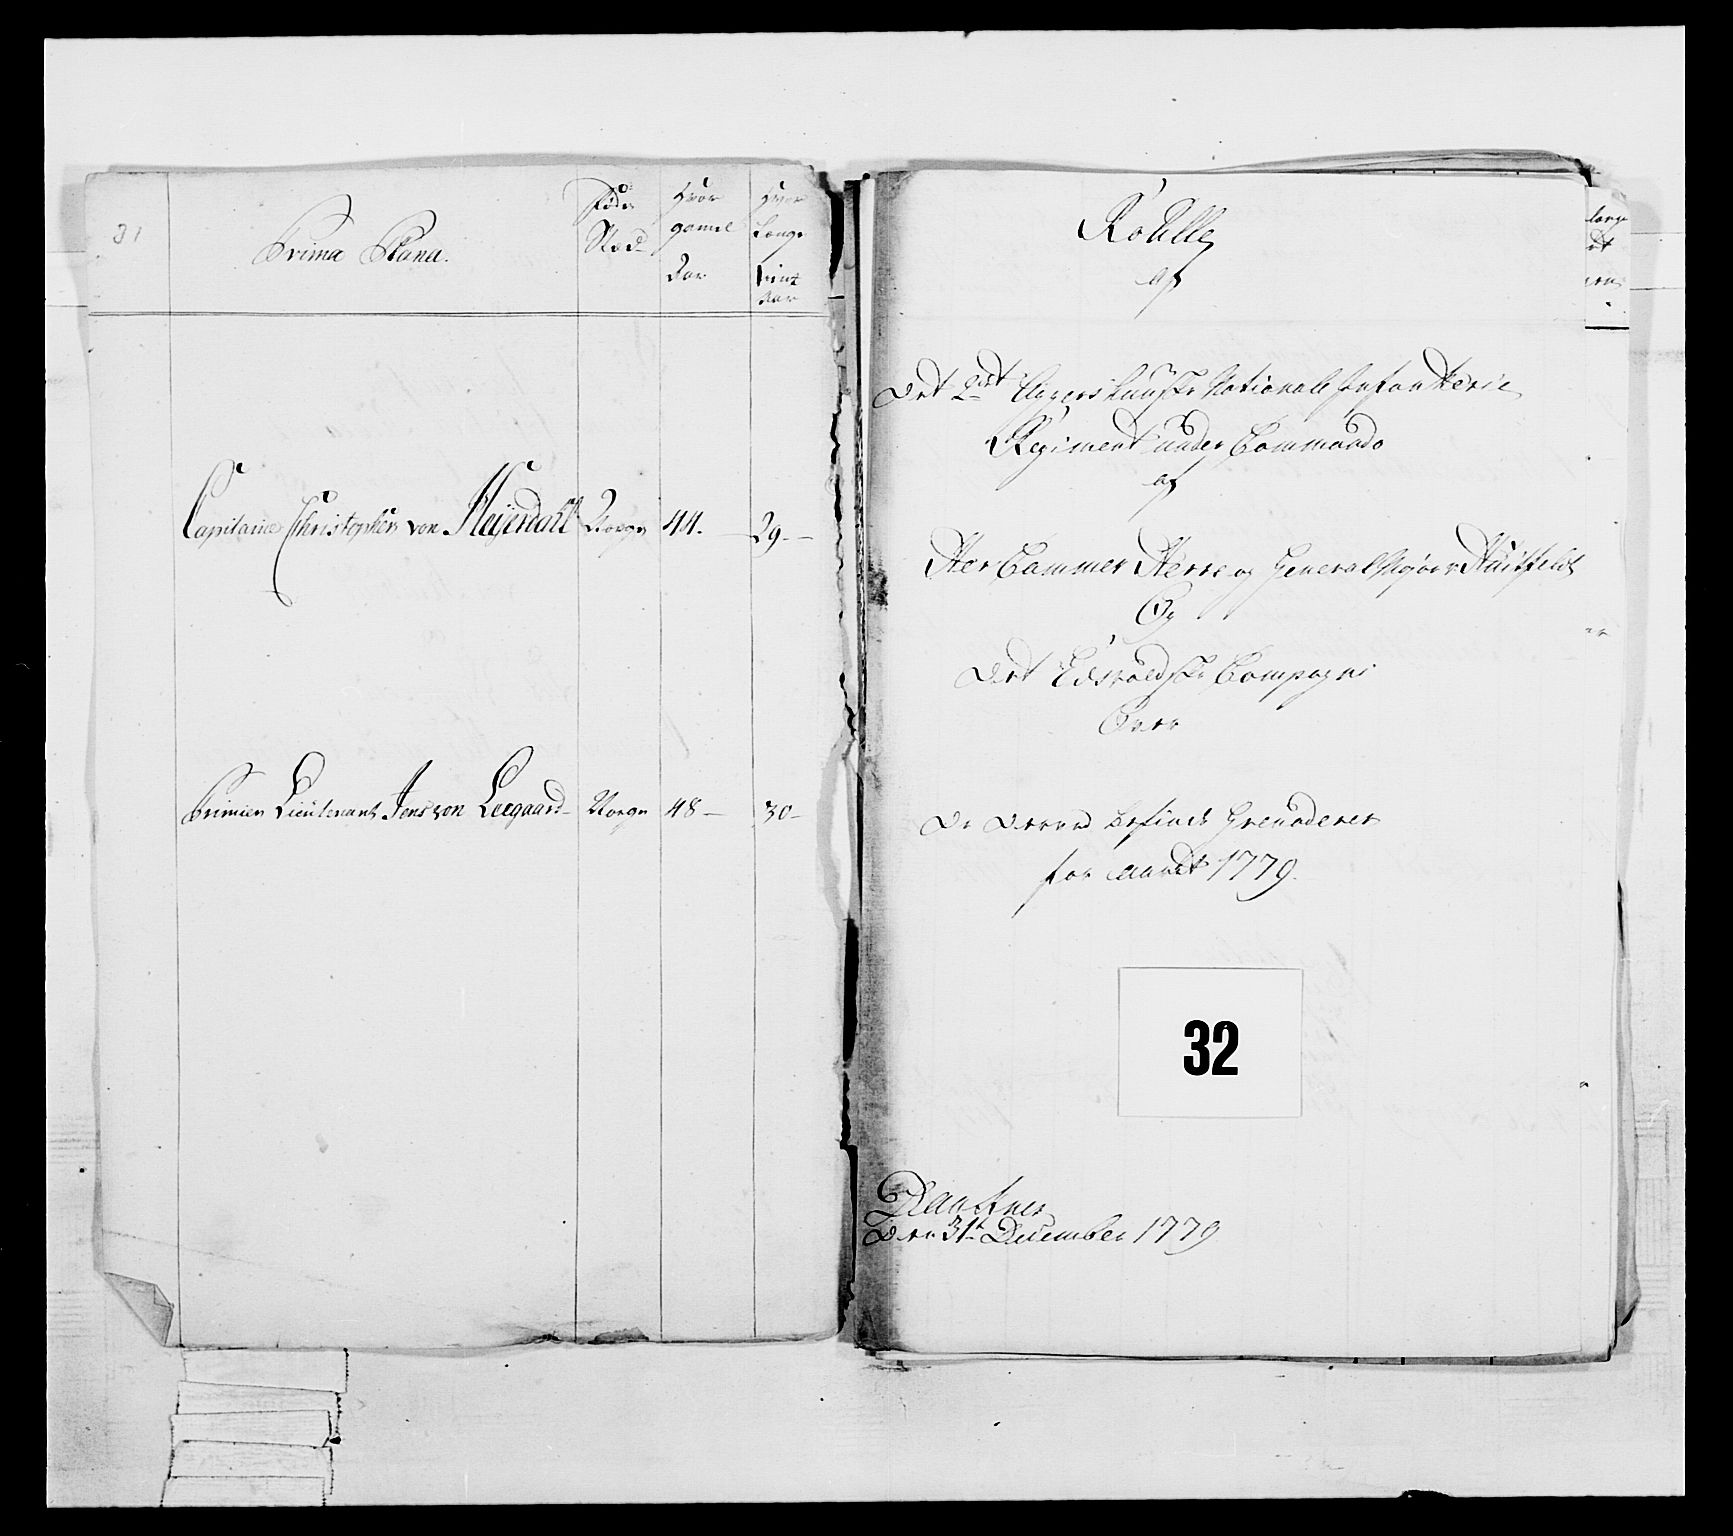 31
Prima Plana.
Føde
Stæd
Hvor
gamel
Aar
Hvor
Længe
tient
Aar
Capitaine Christopher von Heijerdahl Norge 44. 29.
Primier Lieutenant Jens von Leegaard Norge 48 30
Roulle
af
Det 2det Aggershuusiske Nationale Infanterie
Regiment under Commando
af
Her Cammer Herre og General Major Huitfeldt
Og
Det Edsvoldske Compagni
Over
De Derved befindl Grenaderer
for Aaret 1779.
32
Den 31t December 1779